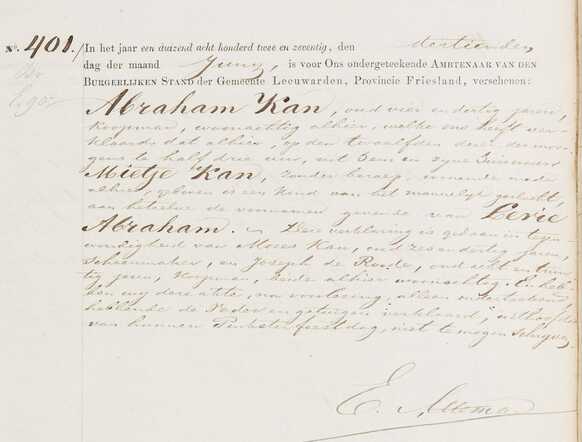 No. 401. In het jaar een duizend acht honderd twee en zeventig, den dertienden
dag der maand Juny, is voor Ons ondergeteekende AMBTENAAR VAN DEN
BURGERLIJKEN STAND der Gemeente Leeuwarden, Provincie Friesland, verschenen:
Abraham Kan, oud vier en dertig jaren,
koopman, woonachtig alhier, welke ons heeft ver-
klaard dat alhier, op den twaalfden dezer des mor-
gens te half drie ure, uit hem en zijne huisvrouw
Mietje Kan, zonder beroep, wonende mede
alhier, geboren is een kind van het mannelijk geslacht,
aan hetwelk de voornamen gevende van Levie
Abraham. Deze verklaring is gedaan in tegen-
woordigheid van Mozes Kan, oud zes en dertig jaren,
en Joseph de Roode, oud acht en twin-
tig jaren, koopman, beide alhier woonachtig. En heb-
ben wij deze akte, na voorlezing, alleen onderteekend,
hebbende de Vader en getuigen verklaard, uithoofde
van hunnen Pinksterfeestdag, niet te mogen schrijven.